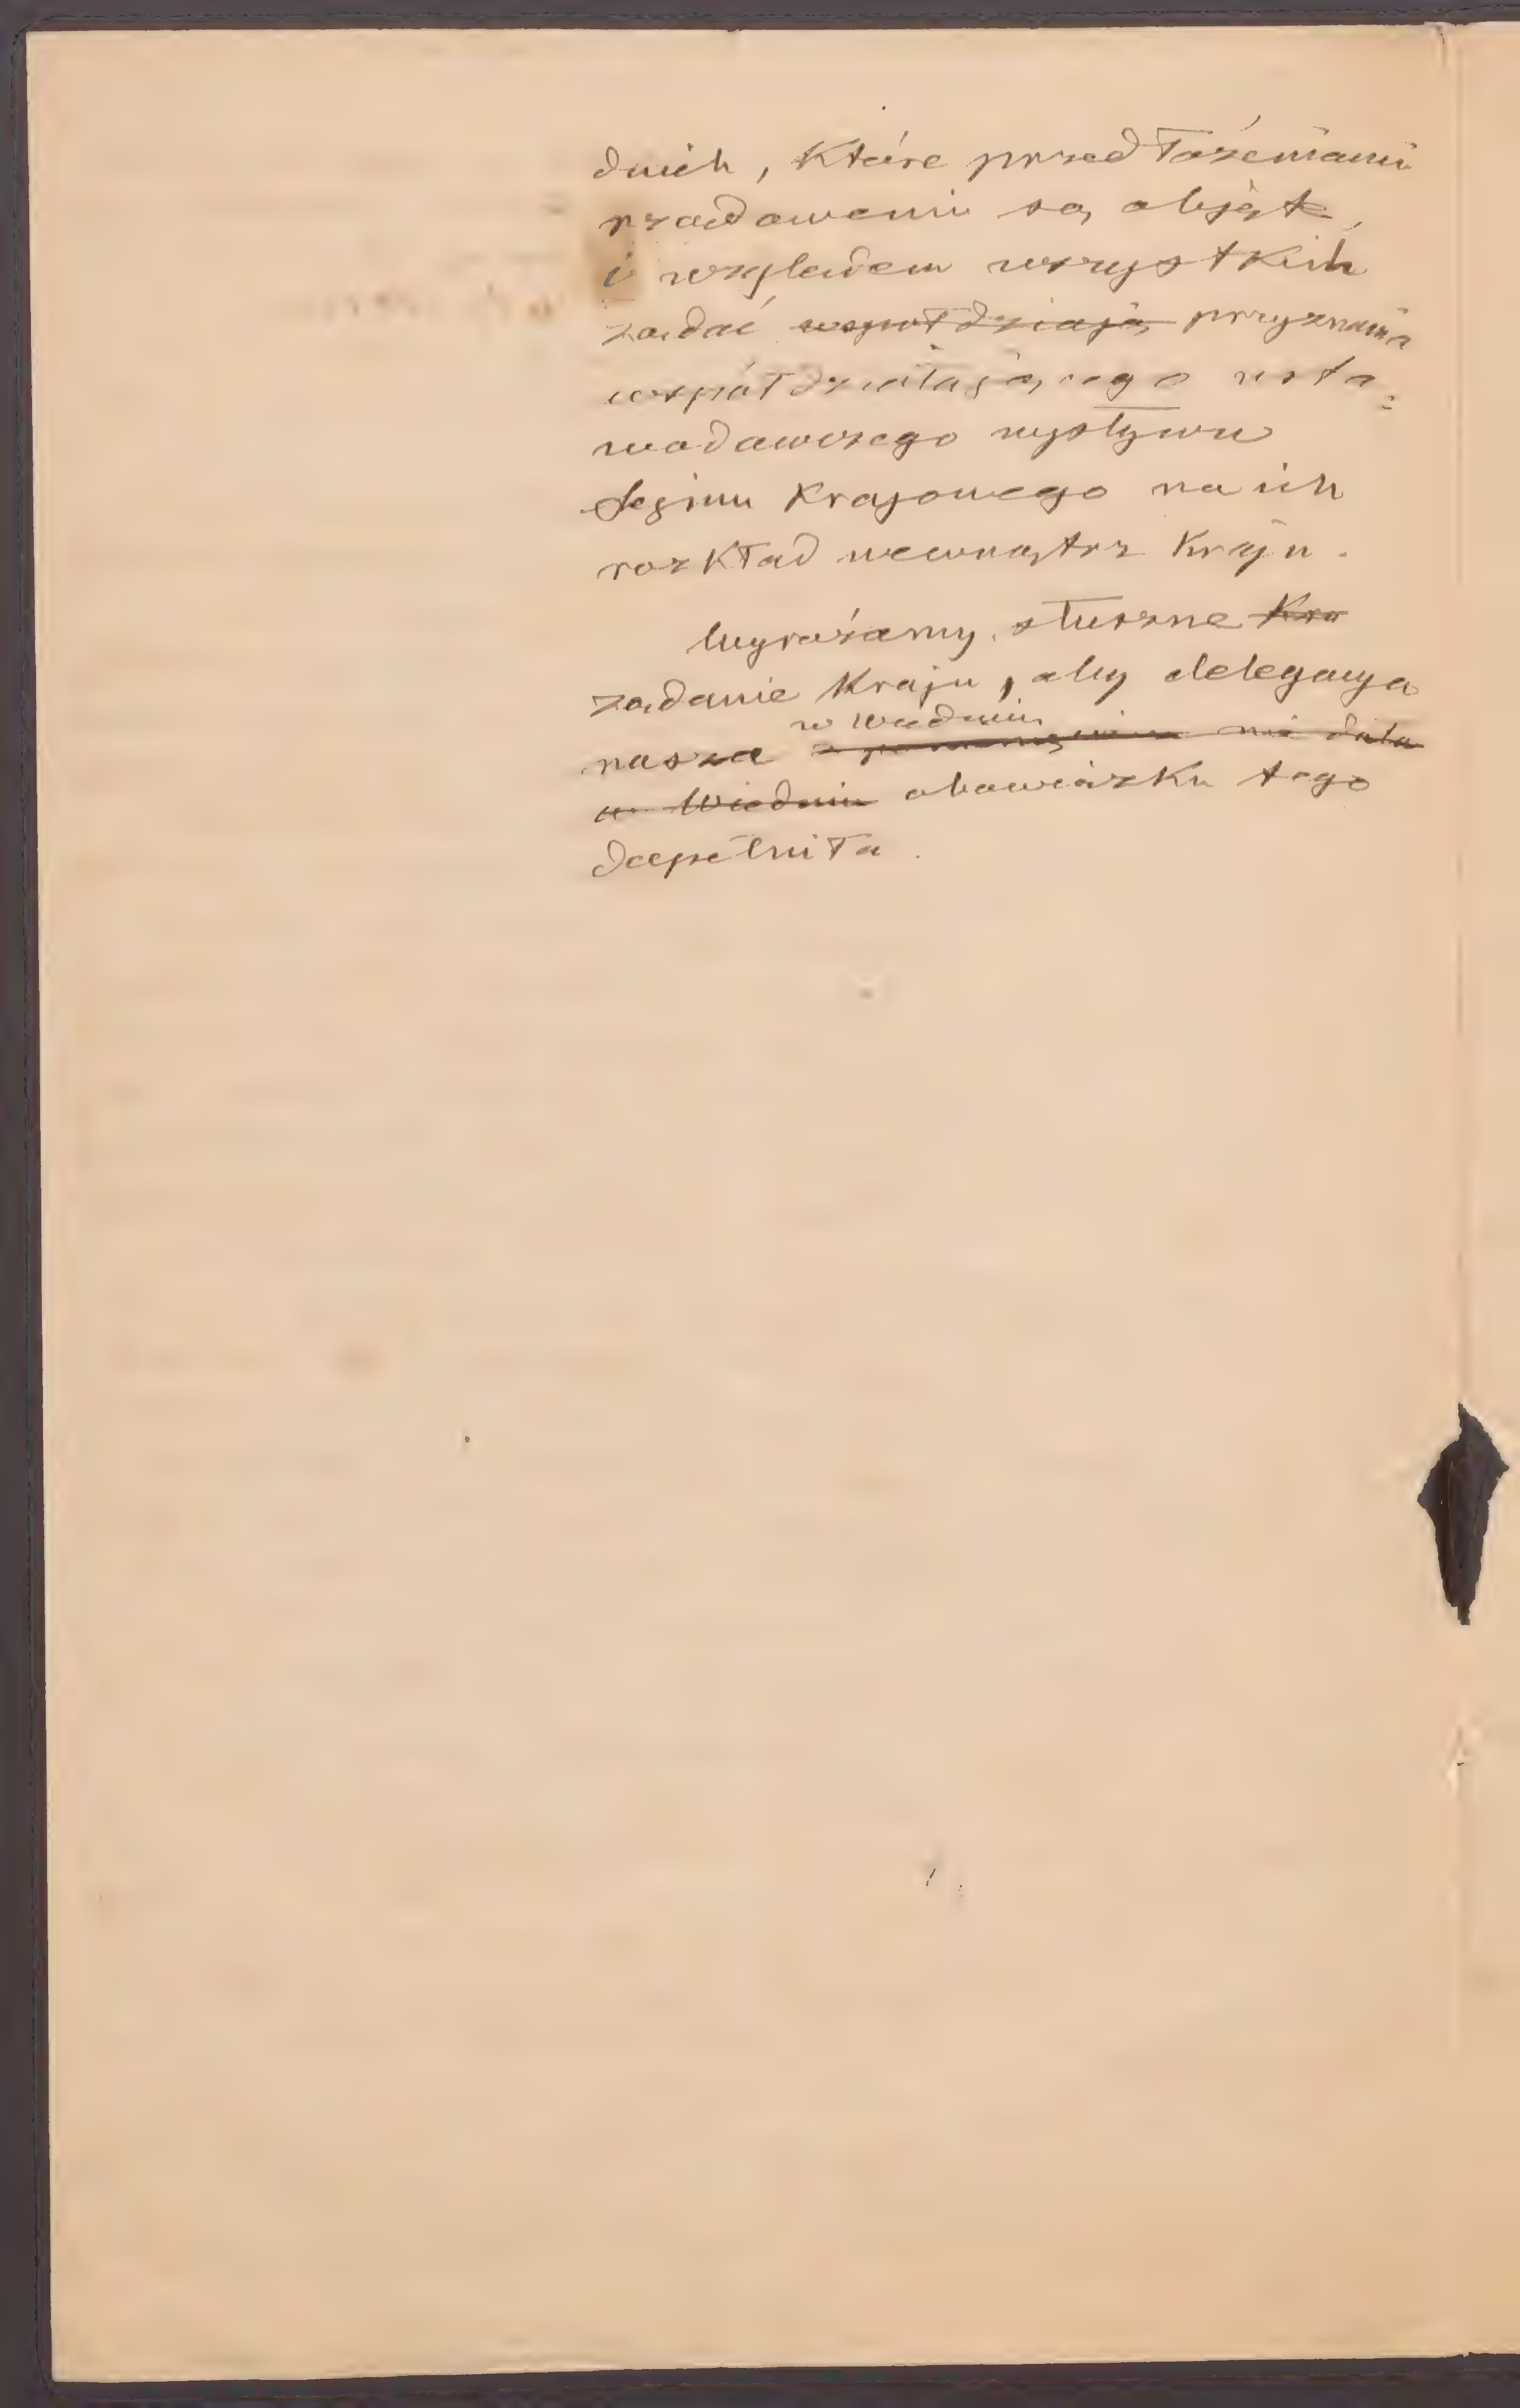 dnich, które przedłożeniami
rządowemi są objęte,
i względem wszystkich
żądać ~~współdziają~~ przyznania
współdziałającego usta=
wodawczego wpływu
Sejmu Krajowego na ich
rozkład wewnątrz Kraju.
Wyrażamy słuszne ~~Kra~~
żądanie Kraju, aby delegacya
w Wiedniu
nasza
~~w Wiedniu~~ obowiązku tego
dopełniła.